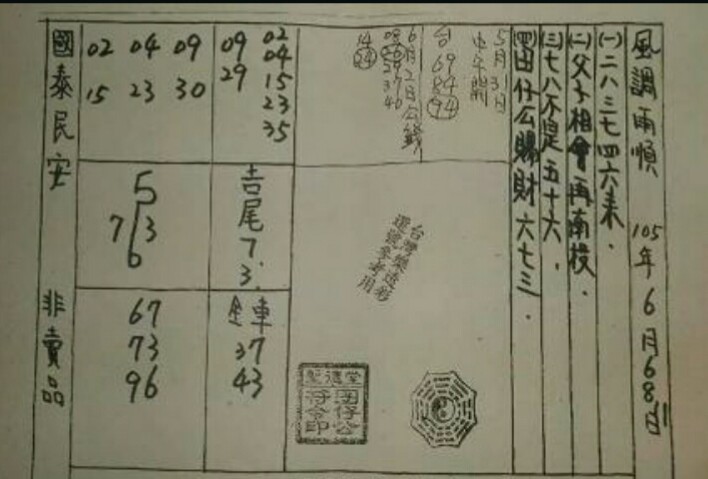 風調雨順 105年6月6.8.11日
(一)二八三七四六來.
(二)父子相會再南枝.
(三)七八不是五十六.
(四)囝仔公賜財六七三.
5月31日
中午開
台 69 84 94
6月2日公錢
08 26 29 37 40
14 24
台灣樂透彩
選號參考用
聖德堂
囝仔公
符令印
02 04 15 23 35
09 29
09 30
04 23
02 15
吉尾 7. 3.
5
7 3
6
全車 37 43
67
73
96
國泰民安 非賣品